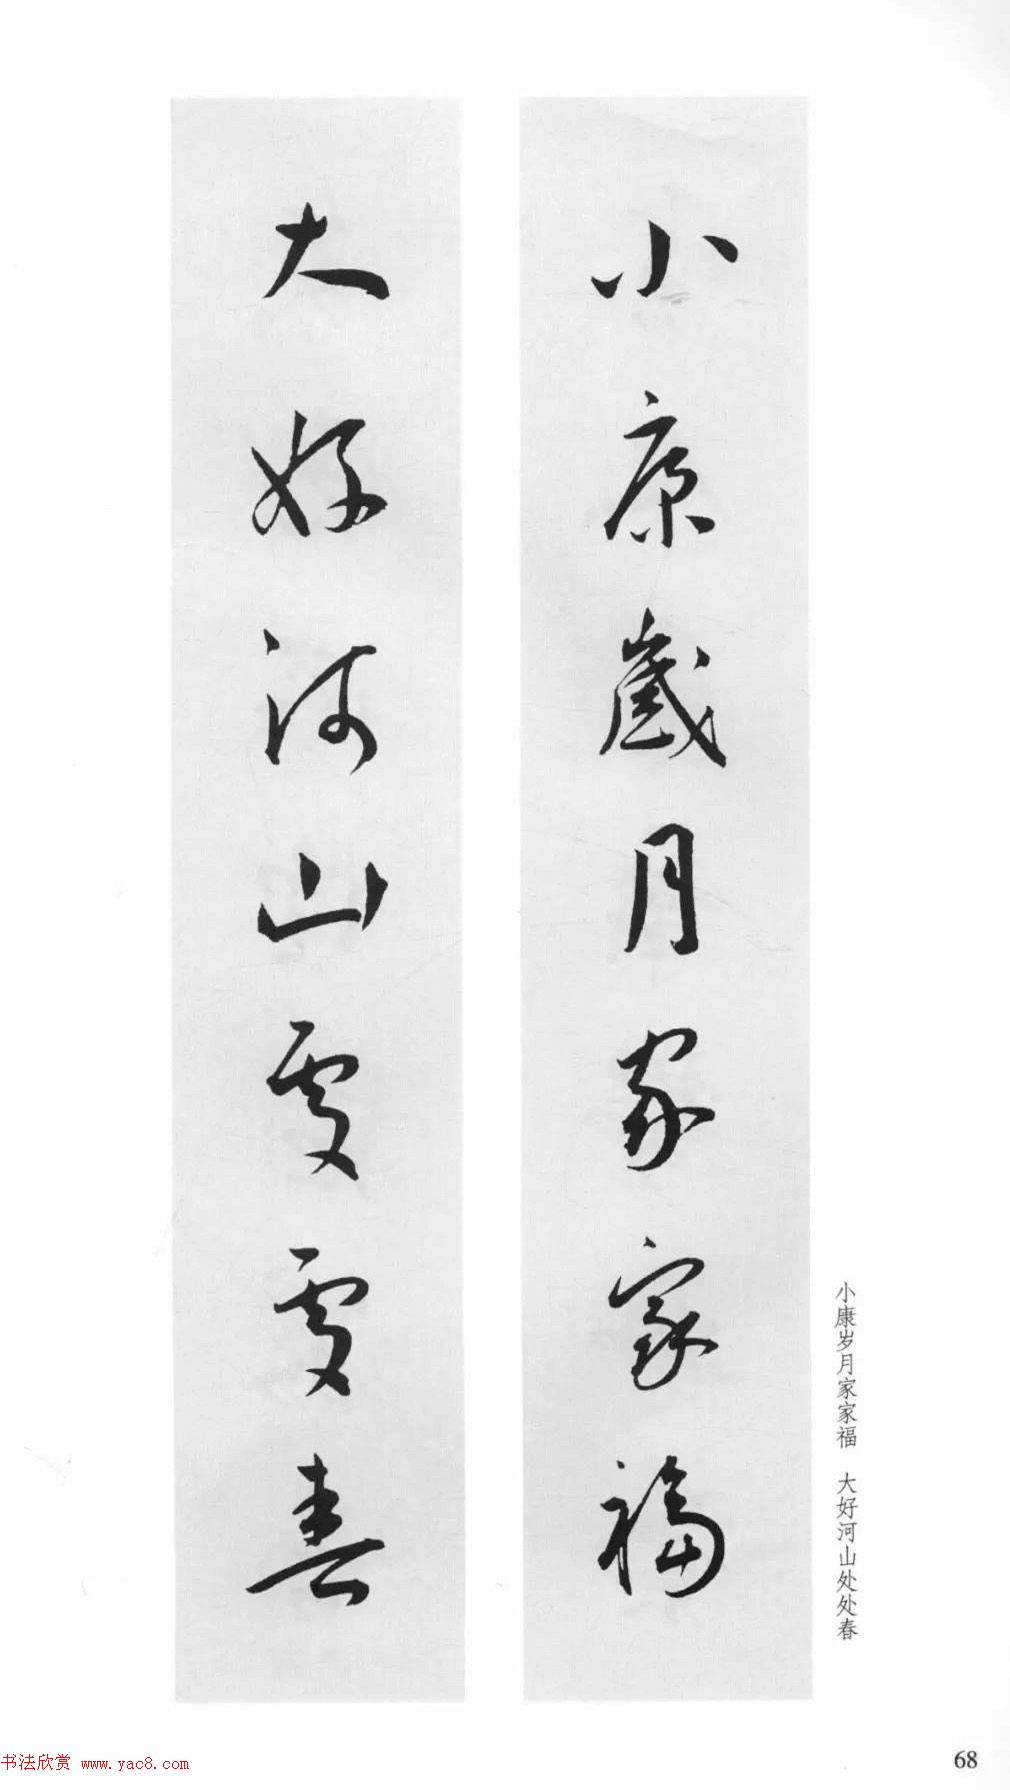 小康歲月家家福
大好河山處處春
小康岁月家家福 大好河山处处春
书法欣赏 www.yac8.com
68